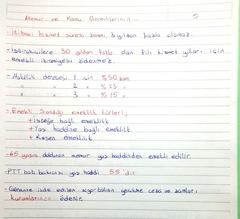 Memur ve Kamu Görevlilerinin
- İtibari hizmet süresi zammı 3 yıldan fazla olamaz.
- İştirakçilere 30 yıldan fazla olan fiili hizmet yılları için
emekli ikramiyesi ödenmez.
- Malullük derecesi 1 için % 30 zam
" " 2 " % 23 "
" " 3 " % 15 "
- Emekli Sandığı emeklilik türleri;
+ İsteğe bağlı emeklilik
+ Yaş haddine bağlı emeklilik
+ Resen emeklilik
- 65 yaşını dolduran memur yaş haddinden emekli edilir.
- PTT baş bakıcısı yaş haddi 55 dir.
- Görevine iade edilen sigortalının gecikme ceza ve zamları
kurumlarınca ödenir.